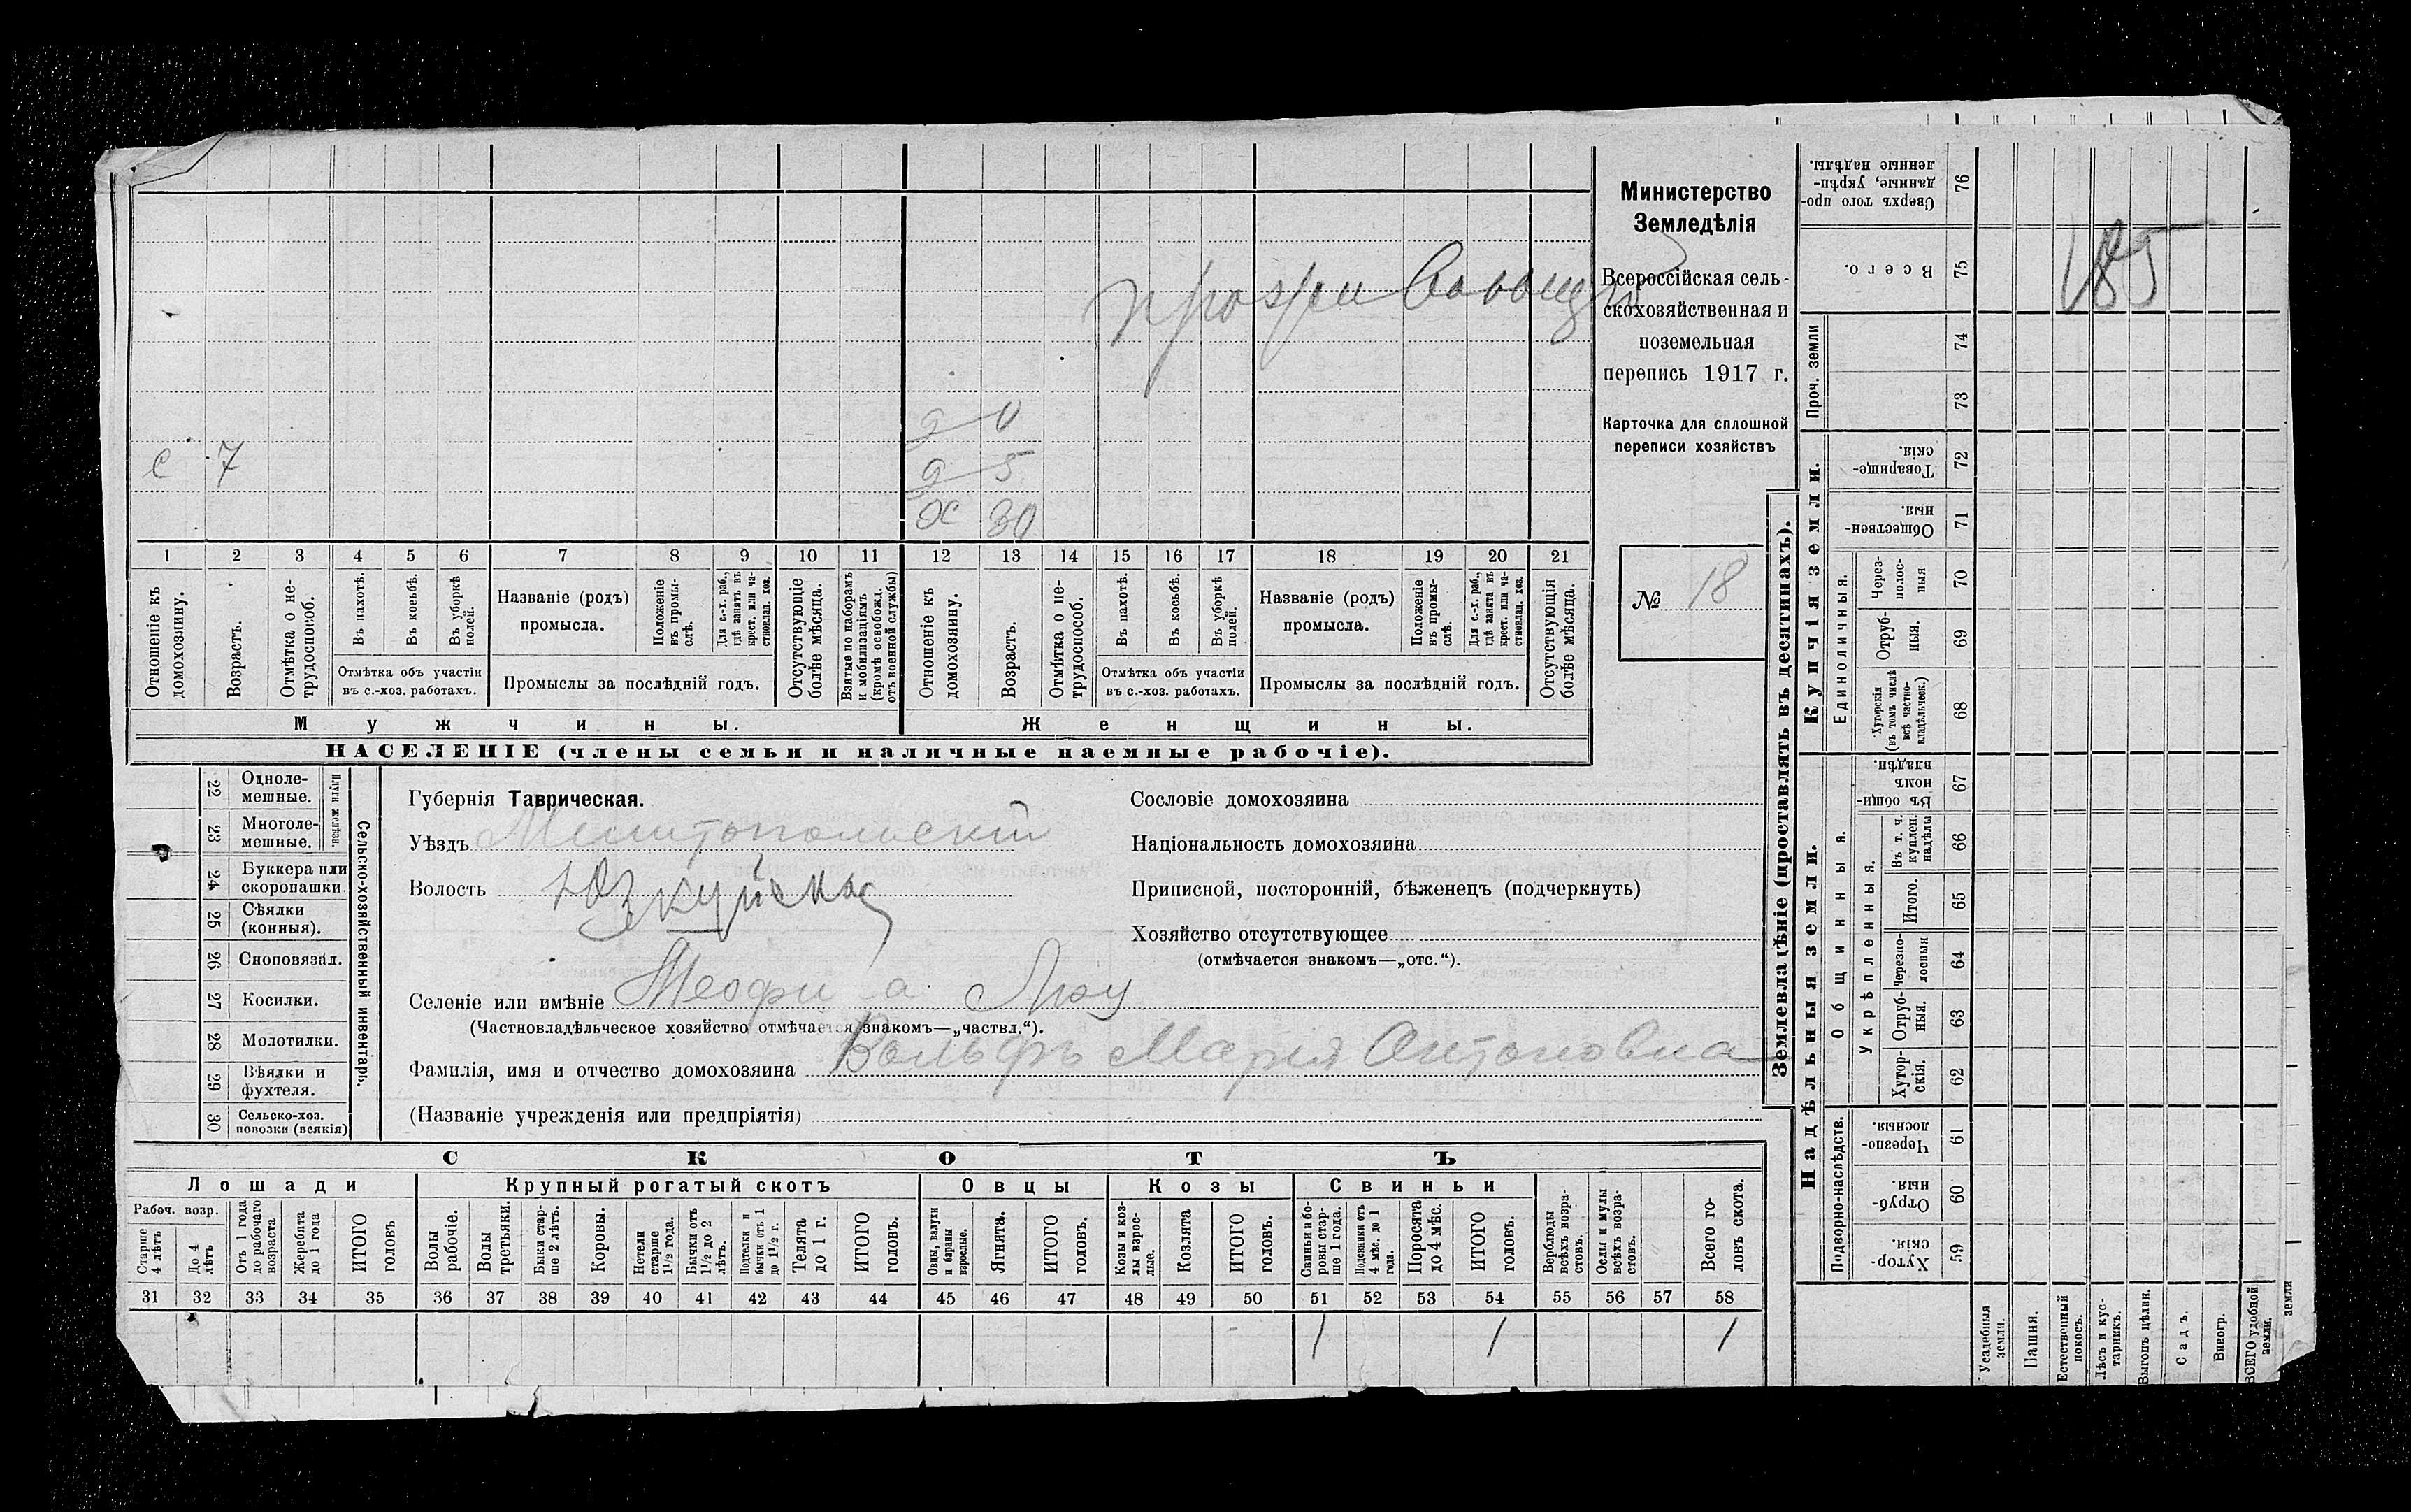 Министерство
Земледѣлія
Всероссійская сель-
скохозяйственная и
поземельная
перепись 1917 г.
Карточка для сплошной
переписи хозяйствъ
№ 18
д 0
с 7
д 5
х 30
1 2 3 4 5 6 7 8 9 10 11 12 13 14 15 16 17 18 19 20 21
Отношеніе къ домохозяину.
Возрастъ.
Отмѣтка о не-трудоспособ.
Въ пахотѣ.
Въ косьбѣ.
Въ уборкѣ полей.
Отмѣтка объ участіи
въ с.-хоз. работахъ.
Названіе (родъ)
промысла.
Положеніе въ промы-слѣ.
Для с.-х. раб., гдѣ занятъ въ крест. или ча-стновлад. хоз.
Промыслы за послѣдній годъ.
Отсутствующіе болѣе мѣсяца.
Взятые по наборамъ и мобилизаціямъ (кромѣ освобожд. отъ военной службы)
Отношеніе къ домохозяину.
Возрастъ.
Отмѣтка о не-трудоспособ.
Въ пахотѣ.
Въ косьбѣ.
Въ уборкѣ полей.
Отмѣтка объ участіи
въ с.-хоз. работахъ.
Названіе (родъ)
промысла.
Положеніе въ промы-слѣ.
Для с.-х. раб., гдѣ занята въ крест. или ча-стновлад. хоз.
Промыслы за послѣдній годъ.
Отсутствующія болѣе мѣсяца.
Мужчины.
Женщины.
НАСЕЛЕНІЕ (члены семьи и наличные наемные рабочіе).
22 Одноле-мешные.
23 Многоле-мешные.
Плуги желѣзн.
24 Буккера или скоропашки.
25 Сѣялки (конныя).
26 Сноповязал.
27 Косилки.
28 Молотилки.
29 Вѣялки и фухтеля.
30 Сельско-хоз. повозки (всякія)
Сельско-хозяйственный инвентарь.
Губернія Таврическая.
Уѣздъ Мелитопольскій
Волость Юзкуйская
Селеніе или имѣніе
(Частновладѣльческое хозяйство отмѣчается знакомъ—„частвл.“).
Фамилія, имя и отчество домохозяина Вольфъ Марія Антоновна
(Названіе учрежденія или предпріятія)
Сословіе домохозяина
Національность домохозяина
Приписной, посторонній, бѣженецъ (подчеркнуть)
Хозяйство отсутствующее
(отмѣчается знакомъ—„отс.“).
СКОТЪ
Лошади
Крупный рогатый скотъ
Овцы
Козы
Свиньи
Рабоч. возр.
Старше 4 лѣтъ
До 4 лѣтъ
Отъ 1 года до рабочаго возраста
Жеребята до 1 года
ИТОГО головъ
Волы рабочіе.
Волы третьяки.
Быки стар-ше 2 лѣтъ.
Коровы.
Нетели старше 1½ года.
Бычки отъ 1½ до 2 лѣтъ.
Подтелки и бычки отъ 1 до 1½ г.
Телята до 1 г.
ИТОГО головъ.
Овцы, валухи и бараны взрослые.
Ягнята.
ИТОГО головъ.
Козы и коз-лы взрос-лые.
Козлята
ИТОГО головъ.
Свиньи и бо-ровы стар-ше 1 года.
Подсвинки отъ 4 мѣс. до 1 года.
Поросята до 4 мѣс.
ИТОГО головъ.
Верблюды всѣхъ возра-стовъ.
Ослы и мулы всѣхъ возра-стовъ.
Всего го-ловъ скота.
31 32 33 34 35 36 37 38 39 40 41 42 43 44 45 46 47 48 49 50 51 52 53 54 55 56 57 58
1 1 1
Землевладѣніе (проставлять въ десятинахъ).
Сверхъ того про-данные, укрѣп-ленные надѣлы. 76
Всего. 75
185
Проч. земли
74
73
Купчія земли.
Товарище-скія. 72
Обществен-ныя. 71
Единоличныя.
Через-полос-ныя 70
Отруб-ныя. 69
Хуторскія (въ томъ числѣ всѣ частно-владѣльческ.) 68
Надѣльныя земли.
Общинныя.
Въ общин-номъ владѣн. 67
Укрѣпленныя.
Въ т. ч. куплен. надѣлы 66
Итого. 65
Черезпо-лосныя 64
Отруб-ныя. 63
Хутор-скія. 62
Подворно-наслѣдств.
Черезпо-лосныя. 61
Отруб-ныя. 60
Хутор-скія. 59
Усадебныя земли.
Пашня.
Естественный покосъ.
Лѣсъ и кус-тарникъ.
Выгонъ цѣлин.
Садъ.
Виногр.
ВСЕГО удобной земли.
земли